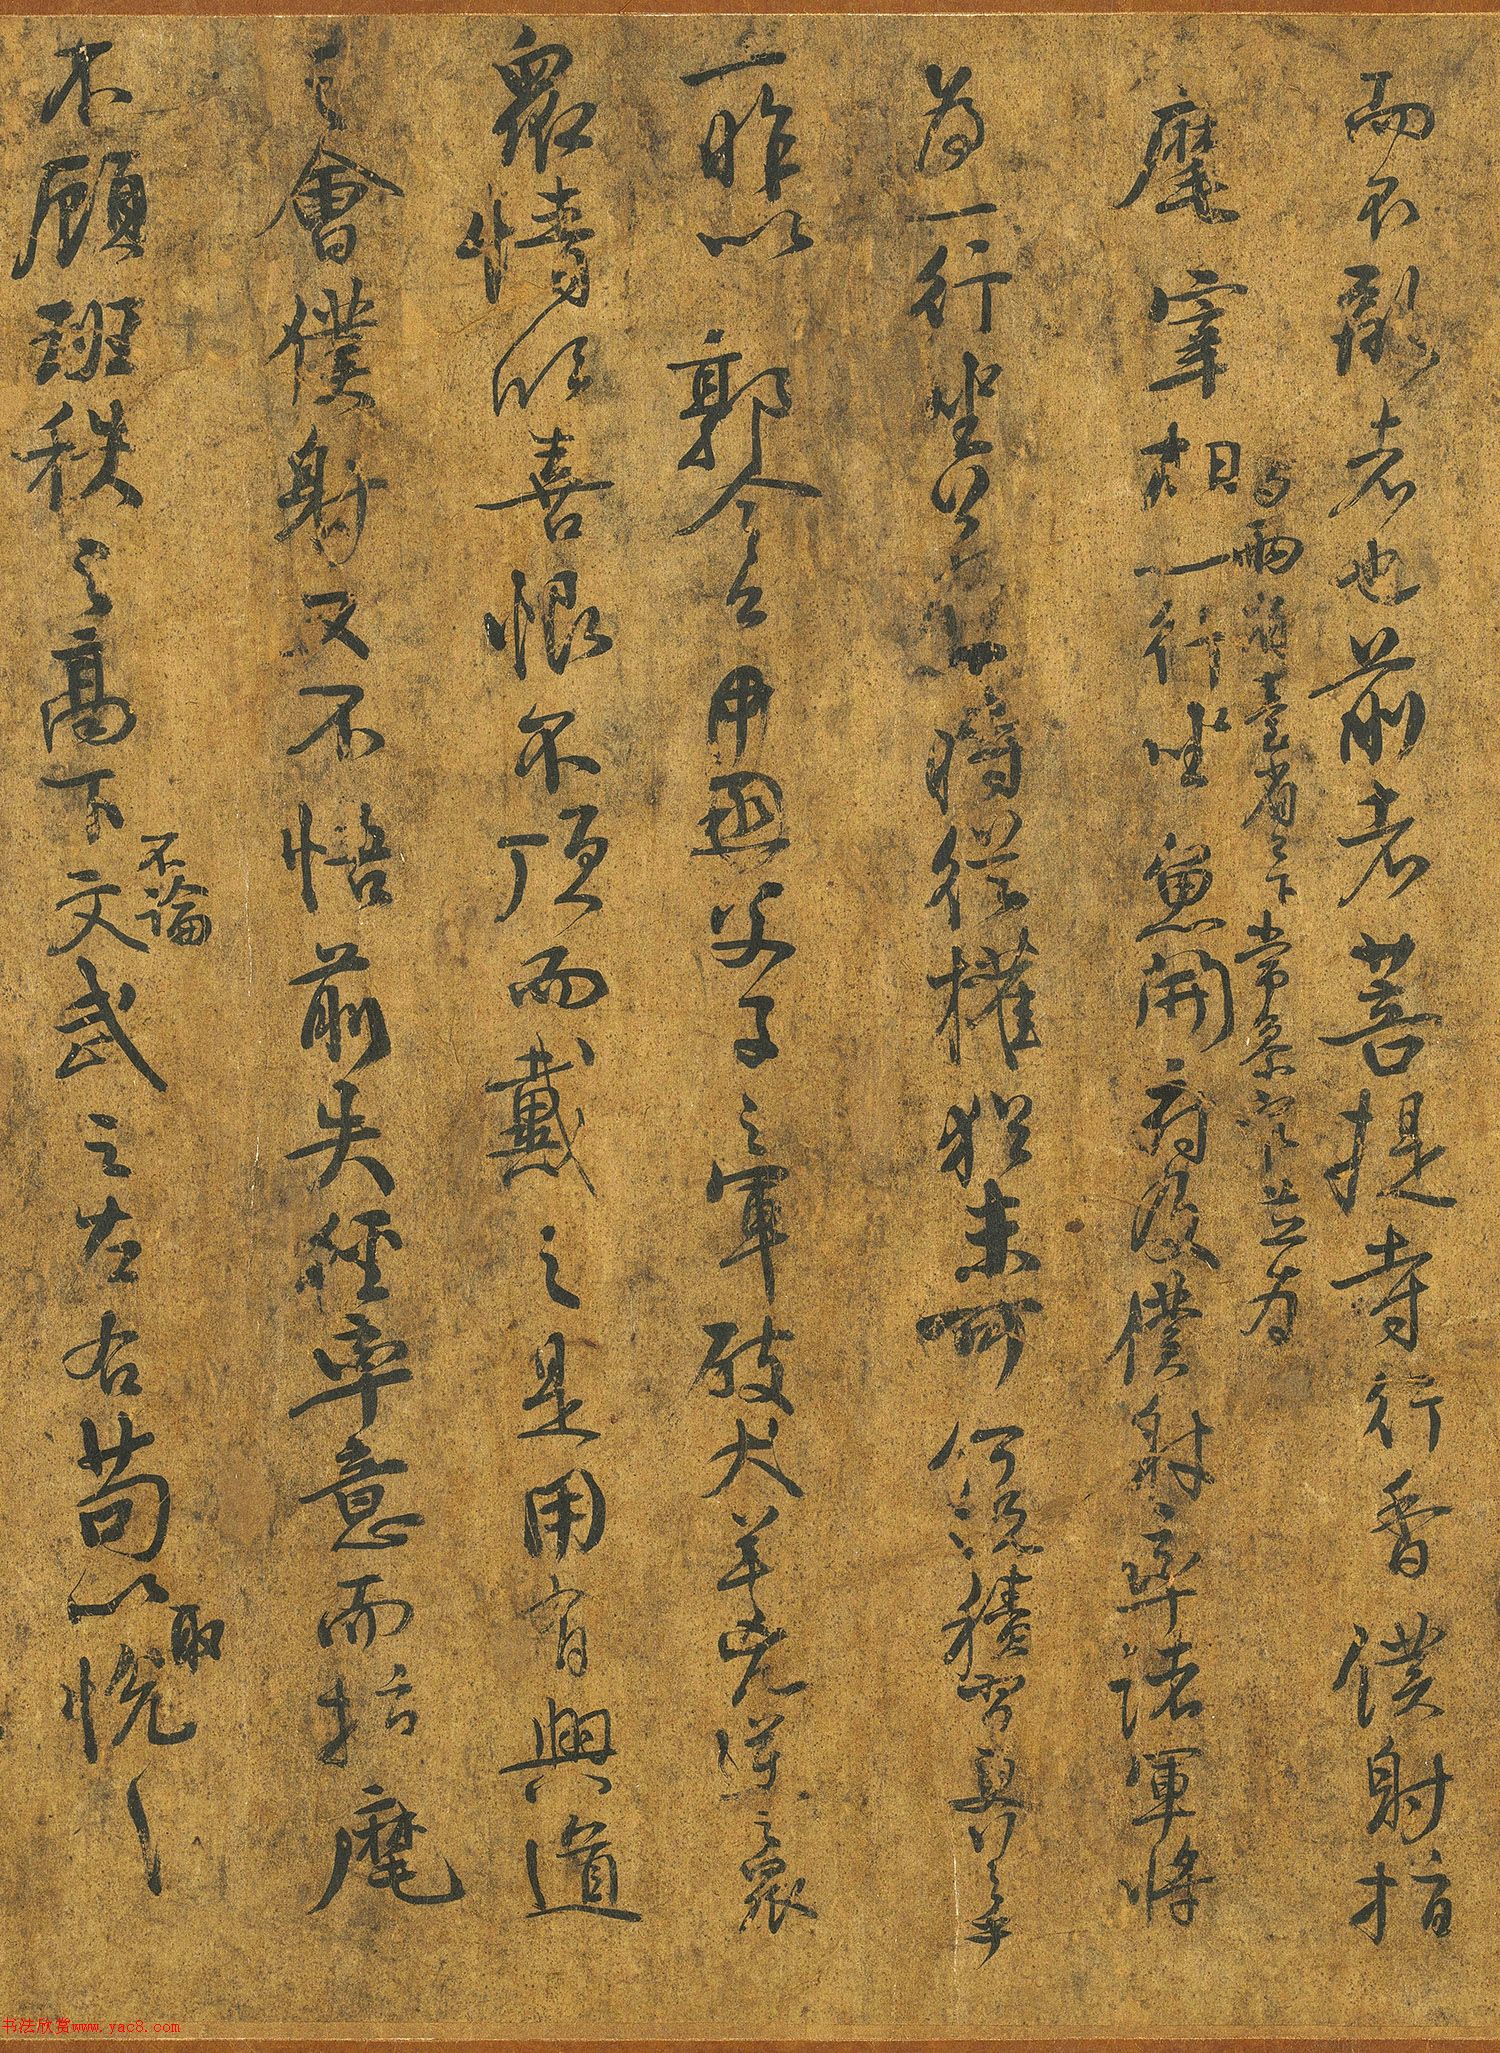 而不亂者也前者菩提寺行香僕射指
麾宰相與兩省臺省已下常參官並為一行坐魚開府及僕射率諸軍將
為一行坐若一時從權猶未可何況積習更行之乎
一昨以郭令公父子之軍破犬羊兇逆之眾
眾情欣喜恨不頂而戴之是用有興道
之會僕射又不悟前失徑率意而指麾
不顧班秩之高下不論文武之左右苟以取悅
书法欣赏www.yac8.com